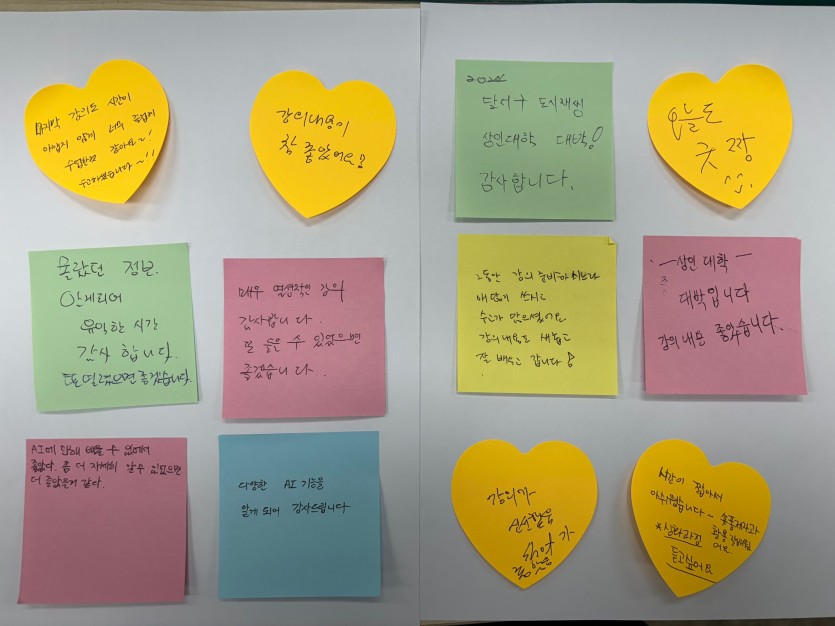 마지막 강의도 시간이
아깝지 않게 너무 즐겁게
수고하셨습니다~!!
강의내용이
참 좋았어요?
몰랐던 정보
유익한 시간
감사 합니다.
또 열렸으면 좋겠습니다.
매우 열성적인 강의
감사합니다.
또 들을 수 있었으면
좋겠습니다.
AI에 대해 배울 수 있어서
좋았다. 좀 더 자세히 알수 있었으면
더 좋았을거 같다.
다양한 AI 기능을
알게 되어 감사드립니다
2024
달서구 도시재생
상인대학 대박!
감사합니다.
오늘도
굿 짱
^^.
그동안 강의 준비하시느라
애 많이 쓰시고
수고가 많으셨어요
강의내용도 새롭고
잘 배우고 갑니다!
-상인 대학-
대박입니다
강의 내용 좋았습니다.
강의가
좋았음
시간이 짧아서
아쉬웠습니다~
*심화과정
듣고싶어요